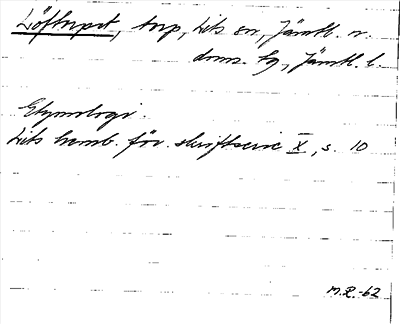 Löfterpet, torp, Lits sn, Jämtl. n.
doms. tg, Jämtl. l.
Etymologi.
Lits hemb. för. skriftserie X, s. 10
M.R.-62